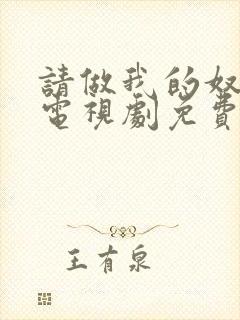 請做我的奴
電視劇免費
王有泉